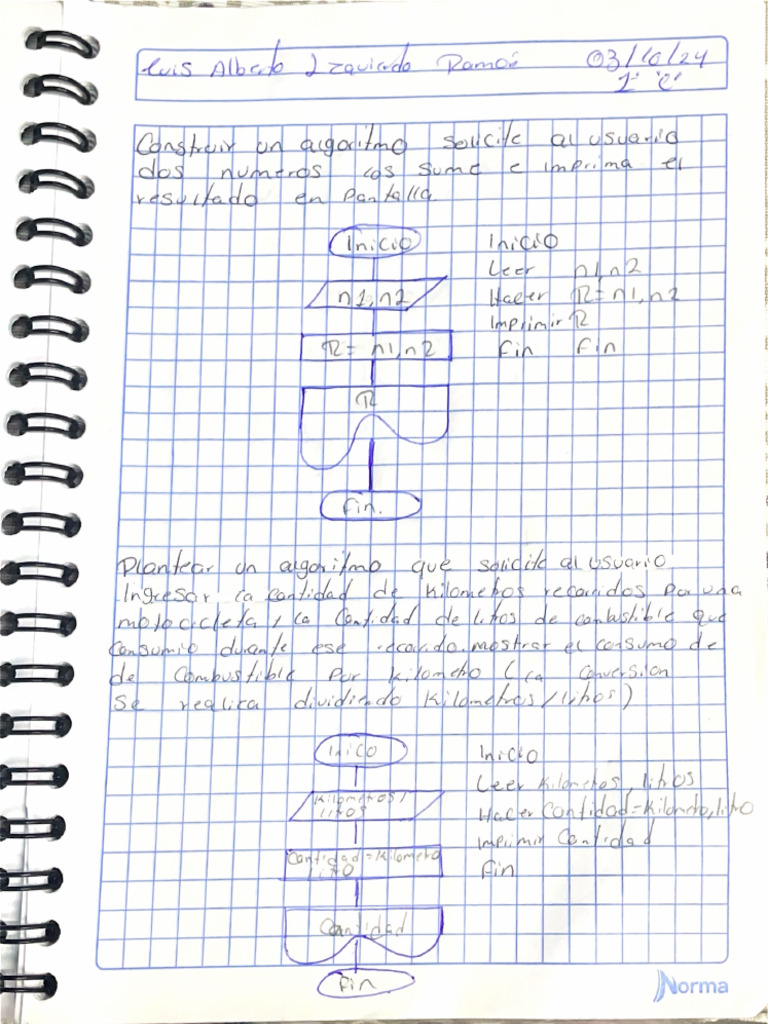 Luis Alberto Izquierdo Ramón 03/10/24
1° "C"
Construir un algoritmo solicite al usuario
dos numeros los sume e imprima el
resultado en pantalla.
Inicio
n1, n2
R = n1, n2
R
Fin.
Inicio
Leer n1, n2
Hacer R = n1, n2
Imprimir R
Fin Fin
Plantear un algoritmo que solicite al usuario
Ingresar la cantidad de Kilometros recorridos por una
motocicleta y la Cantidad de litros de combustible que
Consumio durante ese recorrido. mostrar el consumo de
de Combustible Por Kilometro (la conversion
Se realiza dividiendo Kilometros/litros)
Inico
Kilometros,
litros
Cantidad = Kilometro
litro
Cantidad
Fin
Inicio
Leer Kilometros, litros
Hacer Cantidad = Kilometro, litro
Imprimir Cantidad
Fin
Norma